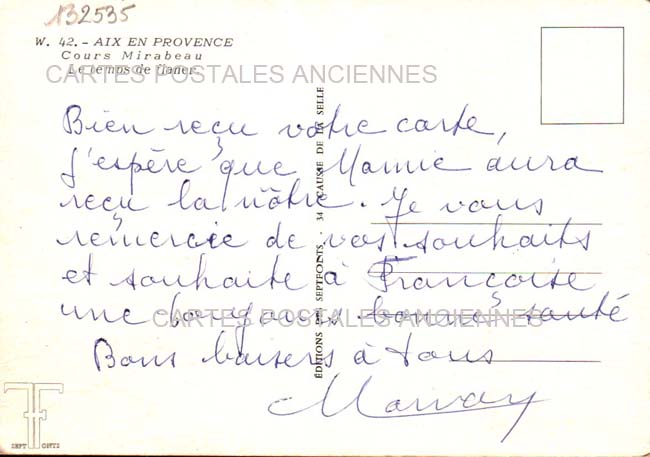 132535
W. 42. - AIX EN PROVENCE
Cours Mirabeau
Le temps de flaner
CARTES POSTALES ANCIENNES
Bien reçu votre carte,
j'espère que Mamie aura
reçu la nôtre. Je vous
remercie de vos souhaits
et souhaite à Françoise
une toujours bonne santé
CARTES POSTALES ANCIENNES
Bons baisers à tous
ÉDITIONS DES SEPTFONTS - 34 CAUSSE DE LA SELLE
SEPT FONTS